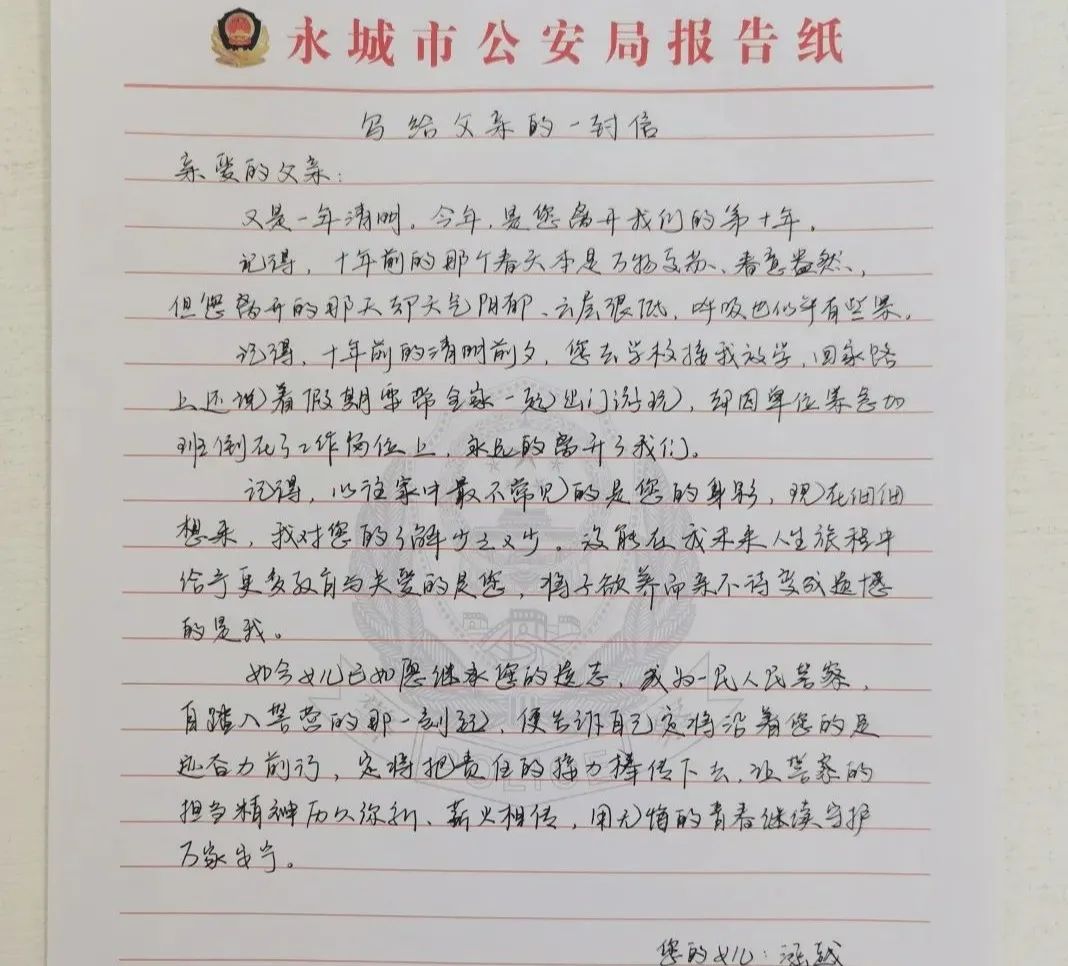 永城市公安局报告纸
写给父亲的一封信
亲爱的父亲：
又是一年清明，今年，是您离开我们的第十年。
记得，十年前的那个春天本是万物复苏、春意盎然，
但您离开的那天却天气阴郁、云层很低，呼吸也似乎有些累。
记得，十年前的清明前夕，您去学校接我放学，回家路
上还说着假期要带全家一起出门游玩，却因单位紧急加
班倒在了工作岗位上，永远的离开了我们。
记得，以往家中最不常见的是您的身影，现在细细
想来，我对您的了解少之又少。没能在我未来人生旅程中
给予更多教育与关爱的是您，将子欲养而亲不待变成遗憾
的是我。
如今女儿已如愿继承您的遗志，成为一民人民警察，
自踏入警营的那一刻起，便告诉自己定将沿着您的足
迹奋力前行，定将把责任的接力棒传下去，让警察的
担当精神历久弥新、薪火相传，用无悔的青春继续守护
万家安宁。
您的女儿：
POLICE